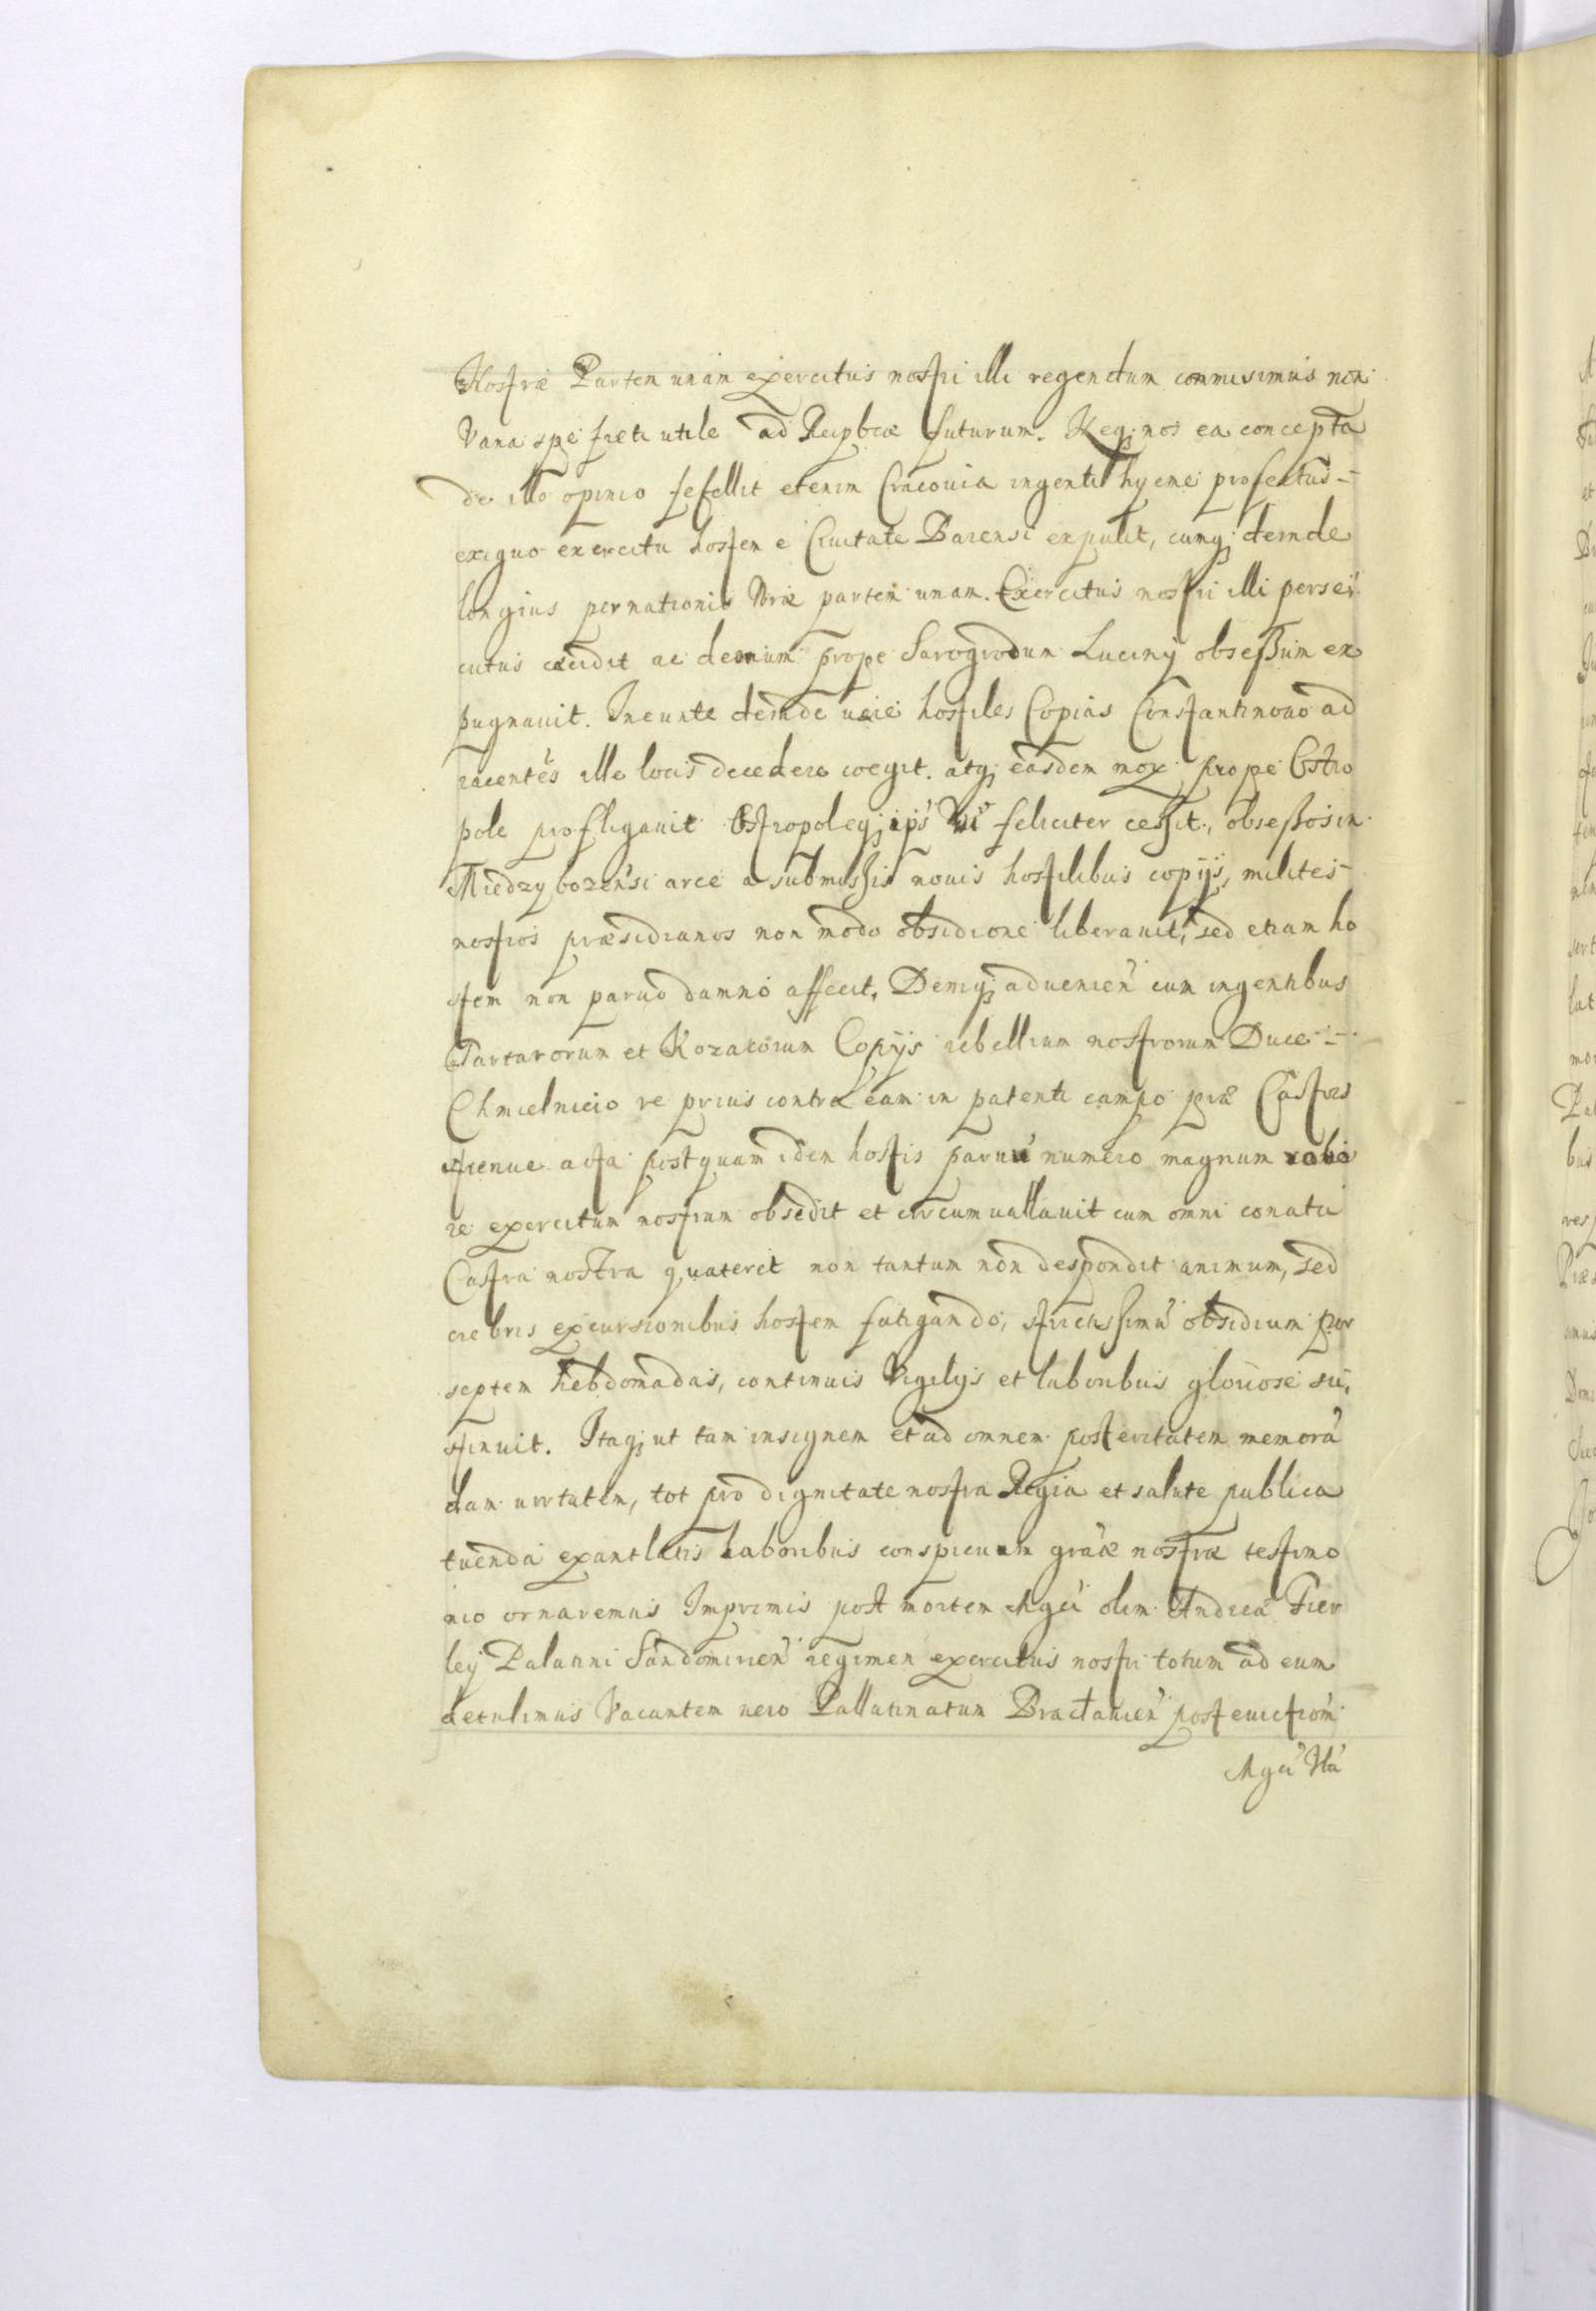 Nostræ Partem unam exercitus nostri illi regendum commisimus non
Vana spe freti utile ad Reipbcæ futurum. Neq; nos ea concepta
de illo opinio fefellit etenim Cracouia ingenti hyeme profectus
exiguo exercitu hostem e Ciuitate Barensi expulit, eumq; deinde
longius pernationis Nræ partem unam. Exercitus nostri illi perse
cutus cecidit ac demum prope Sarogrodum Luciny obseßum ex
pugnauit. Ineunte deinde uere hostiles Copias Constantinouo ad
iacentes ille locis decedere coegit. atq; easdem mox prope Ostro
pole profligauit Ostropoleq; ips feliciter cessit, obseßos in
Miedzybozensi arce a submissis nouis hostilibus copijs, milites
nostros præsidianos non modo obsidione liberauit, sed etiam ho
stem non paruo damno affecit, Deniq; aduenien cum ingentibus
Tartarorum et Kozakorum Copijs rebellium nostrorum Duce
Chmielnicio re prius contra eam in patenti campo præ Castris
strenue acta postquam idem hostis paruu numero magnum robo
re exercitum nostrum obsedit et circumuallauit cum omni conatu
Castra nostra quateret non tantum non despondit animum, sed
crebris excursionibus hostem fatigando, strictissimu obsidium per
septem hebdomadas, continuis Vigilijs et laboribus gloriose su,
stinuit. Itaq; ut tam insignem et ad omnem posteritatem memora
dam uirtutem, tot pro dignitate nostra Regia et salute publica
tuenda exantlatis laboribus conspicuam gratæ nostræ testimo
nio ornaremus Imprimis post mortem Mgci olim Andreæ Fier
ley Palatini Sandomirien regimen exercitus nostri totum ad eum
detulimus Vacantem uero Pallatinatum Braclauien post euictiom
Mgci Na